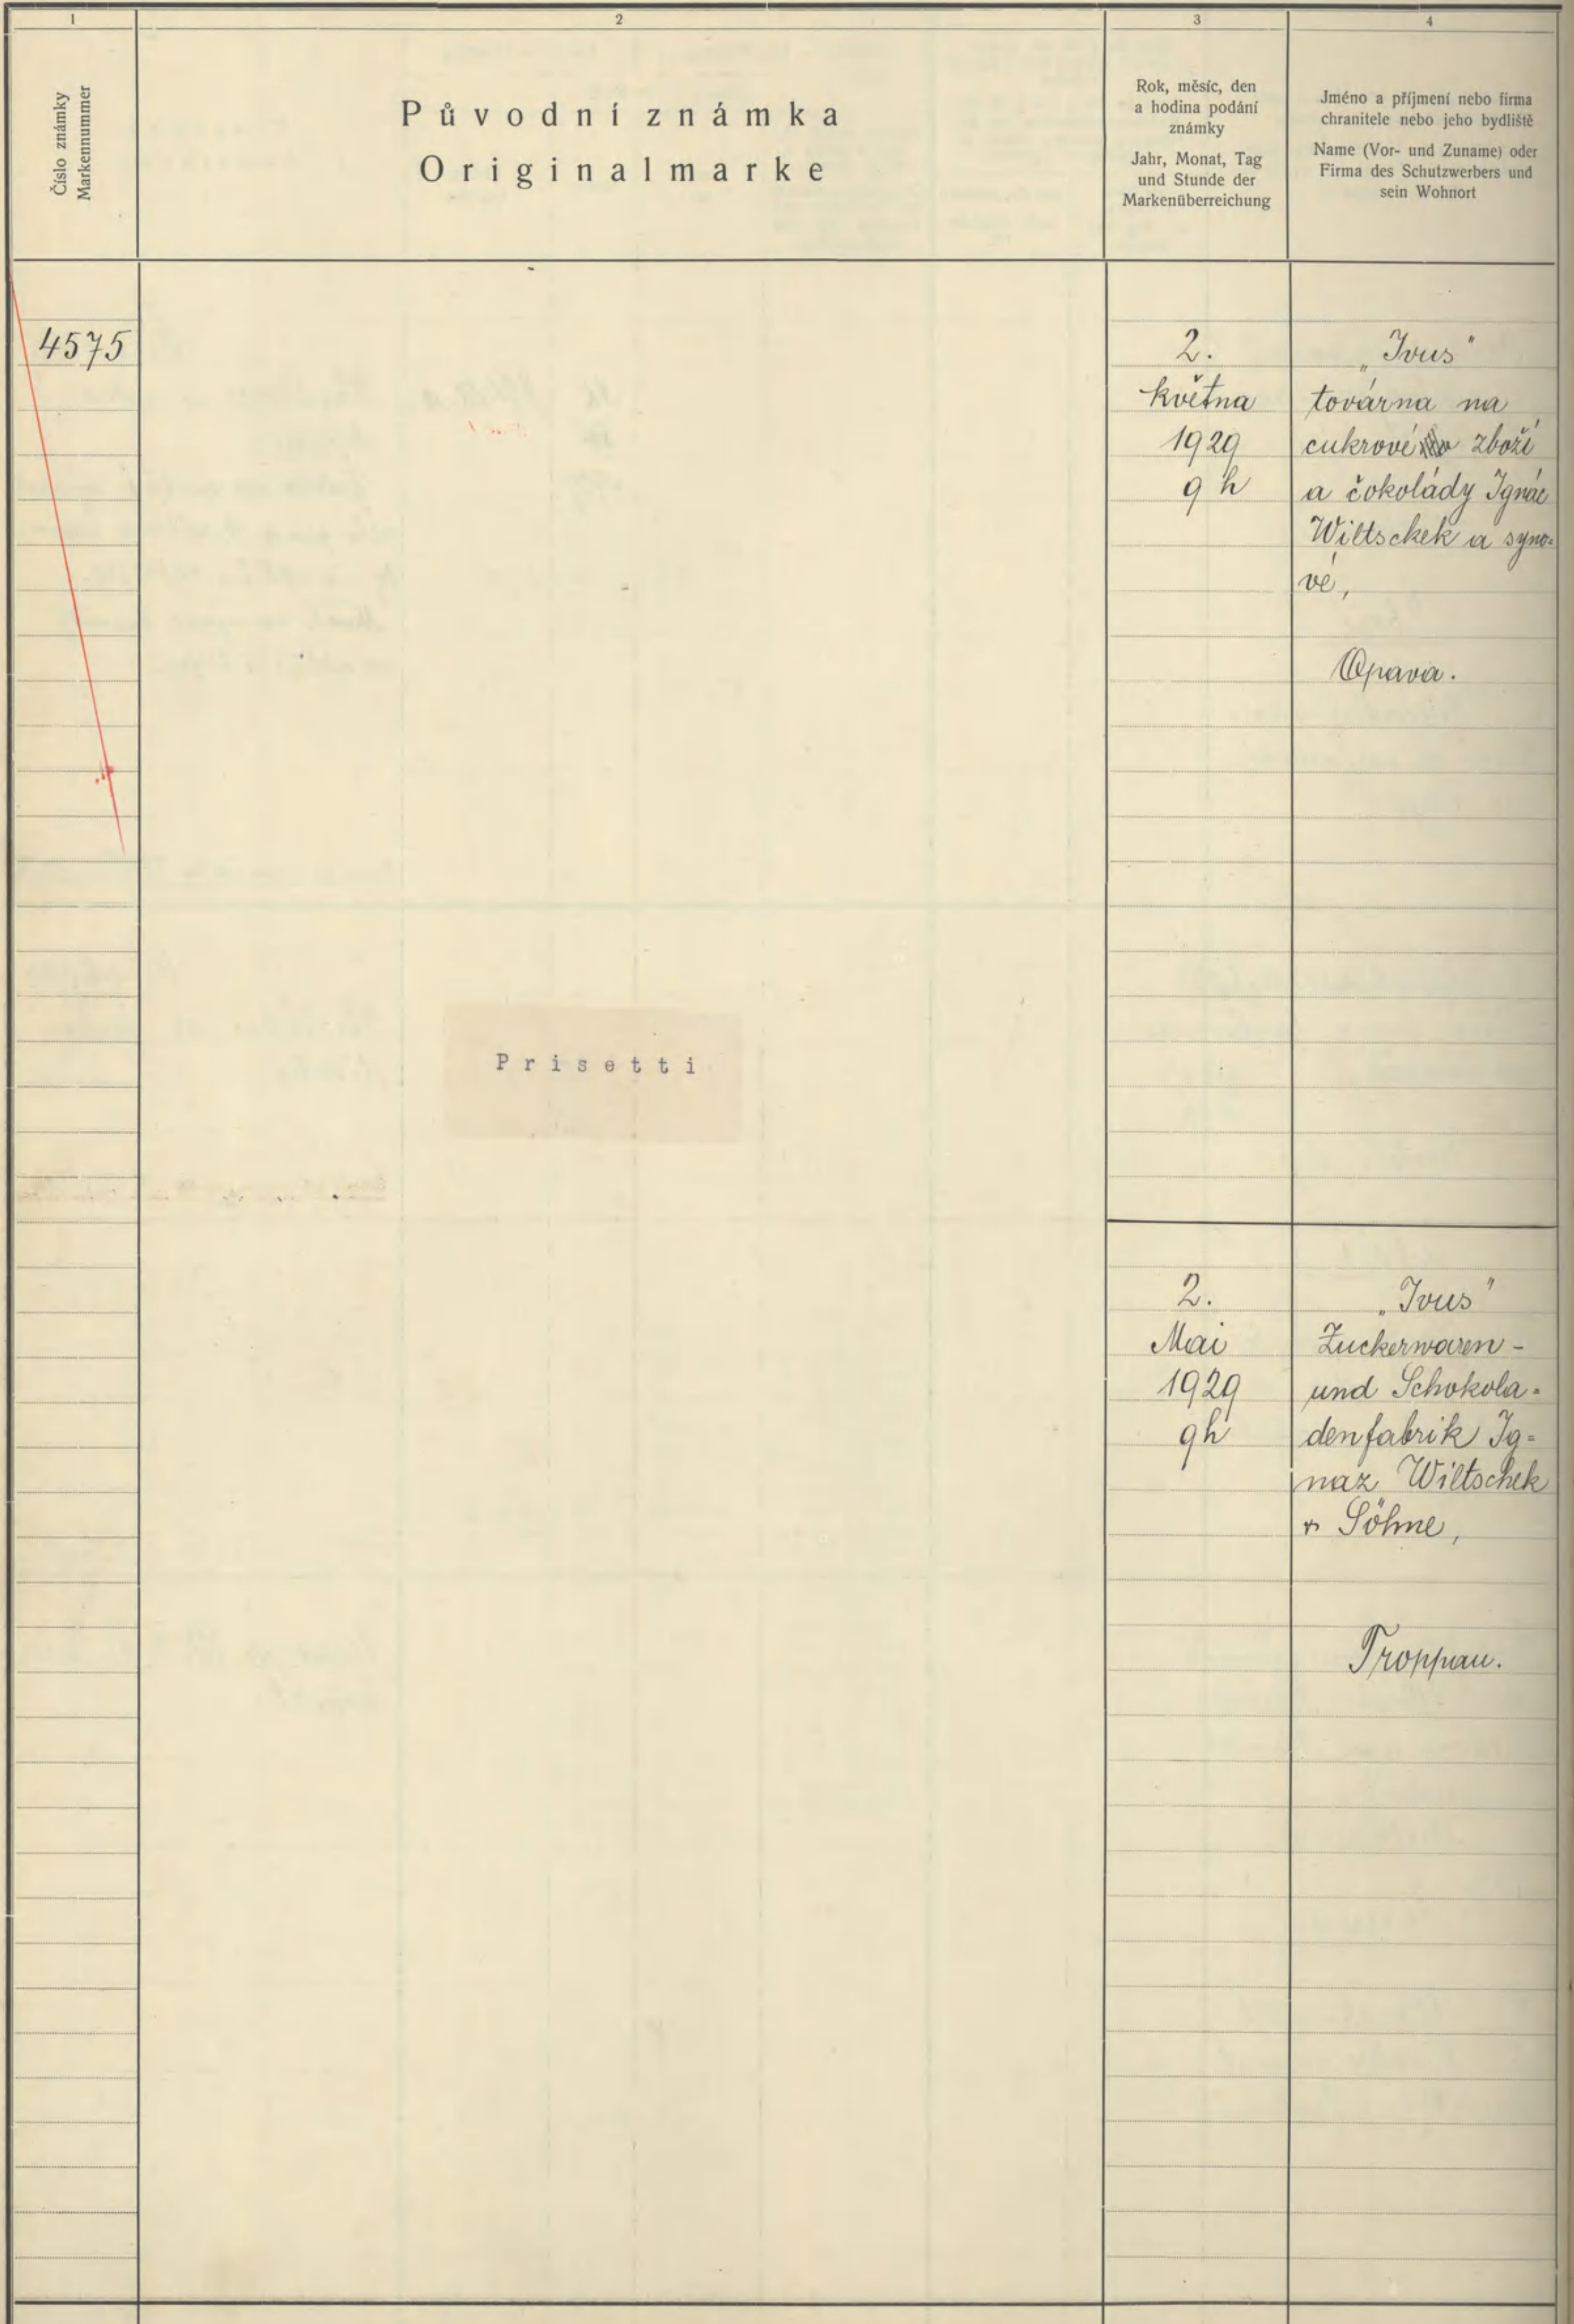 1
2
3
4
Číslo známky
Markennummer
Původní známka
Originalmarke
Rok, měsíc, den
a hodina podání
známky
Jahr, Monat, Tag
und Stunde der
Markenüberreichung
Jméno a příjmení nebo firma
chranitele nebo jeho bydliště
Name (Vor- und Zuname) oder
Firma des Schutzwerbers und
sein Wohnort
4575
2.
května
1929
9 h
„Ivus"
továrna na
cukrové zboží
a čokolády Ignác
Wiltschek a syno=
vé,
Opava.
Prisetti
2.
Mai
1929
9h
„Ivus"
Zuckerwaren -
und Schokola=
denfabrik Ig=
naz Wiltschek
& Söhne,
Troppau.